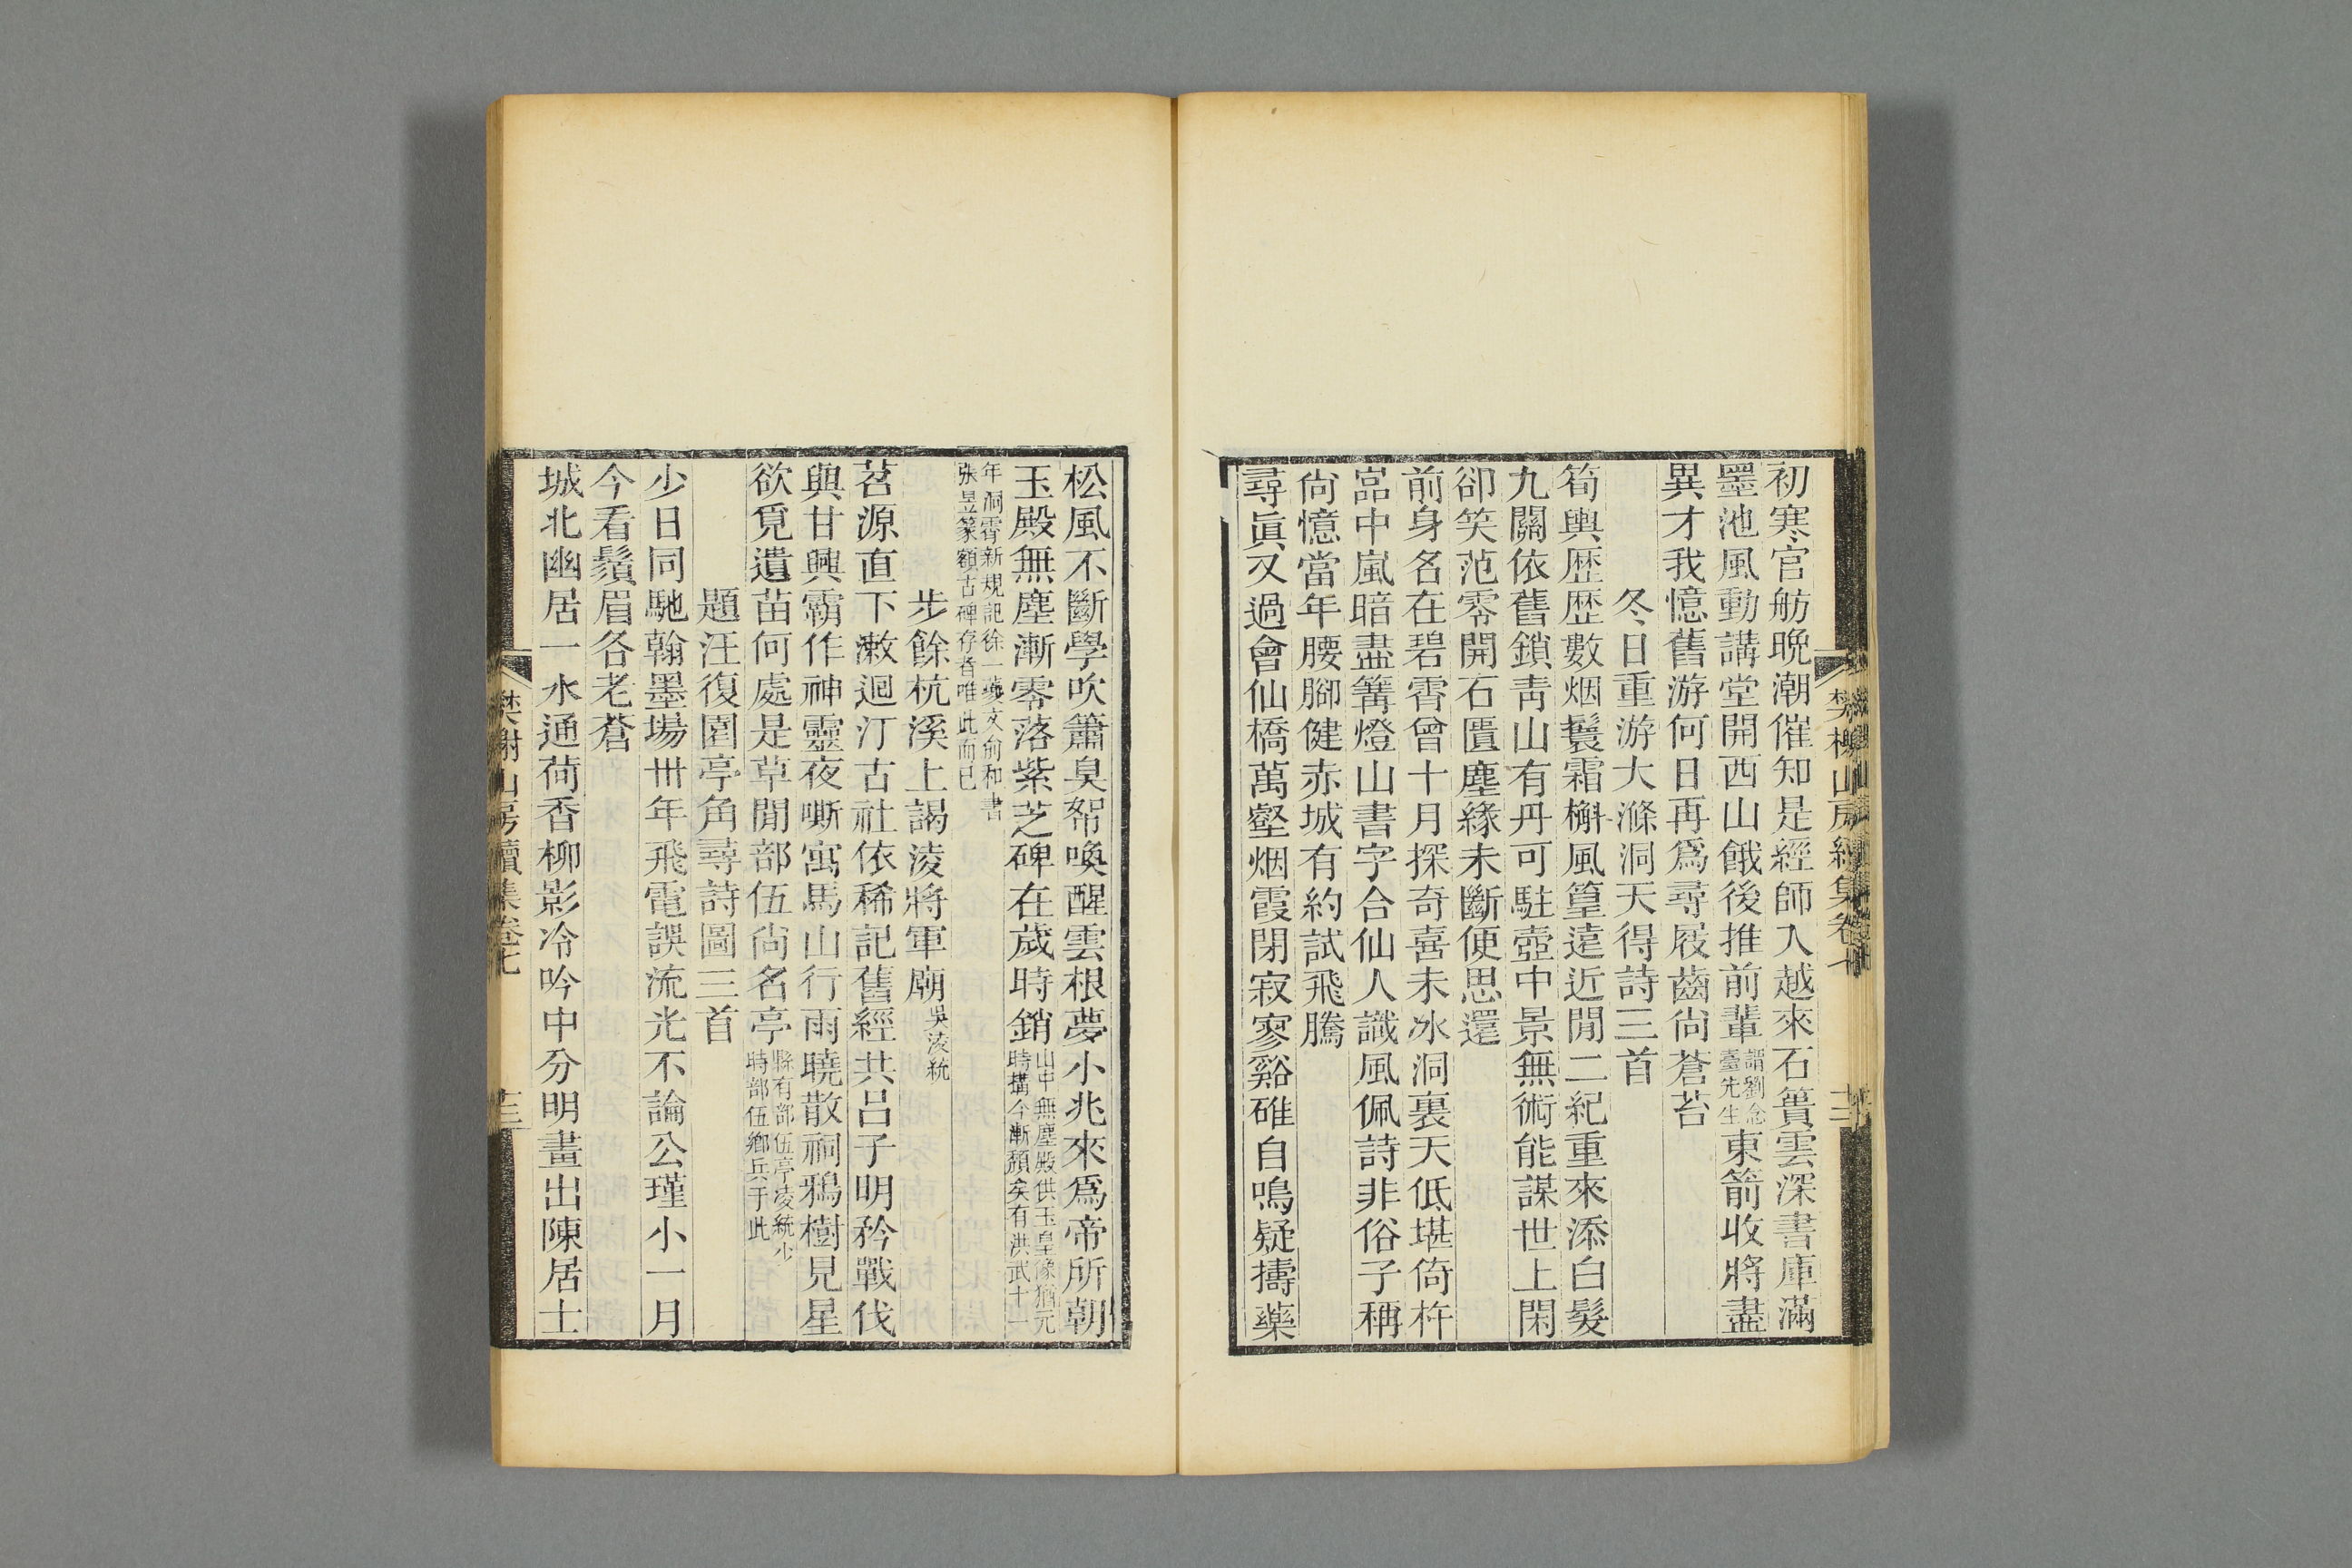 初寒官舫晚潮催知是經師入越來石簣雲深書庫滿
墨池風動講堂開西山餓後推前輩謂劉念臺先生東箭收將盡
異才我憶舊游何日再爲尋屐齒尙蒼苔
冬日重游大滌洞天得詩三首
筍輿歷歷數烟鬟霜槲風篁遠近閒二紀重來添白髮
九關依舊鎖靑山有丹可駐壺中景無術能謀世上閑
卻笑范零開石匱塵緣未斷便思還
前身名在碧霄曾十月探奇喜未冰洞裏天低堪倚杵
嵓中嵐暗盡篝燈山書字合仙人識風佩詩非俗子稱
尙憶當年腰腳健赤城有約試飛騰
尋眞又過會仙橋萬壑烟霞閉寂寥谿碓自鳴疑擣藥
樊榭山房續集卷七
松風不斷學吹簫臭帤喚醒雲根夢小兆來爲帝所朝
玉殿無塵漸零落紫芝碑在歲時銷山中無塵殿供玉皇像猶元時搆今漸頹矣有洪武十一
年洞霄新規記徐一夔文俞和書張昱篆額古碑存者唯此而已
步餘杭溪上謁淩將軍廟吳淩統
苕源直下漱迴汀古社依稀記舊經共呂子明矜戰伐
與甘興霸作神靈夜嘶寓馬山行雨曉散祠鴉樹見星
欲覓遺苗何處是草閒部伍尙名亭縣有部伍亭淩統少時部伍鄉兵于此
題汪復園亭角尋詩圖三首
少日同馳翰墨場卅年飛電誤流光不論公瑾小一月
今看鬚眉各老蒼
城北幽居一水通荷香柳影冷吟中分明畫出陳居士
樊榭山房續集卷七
十三